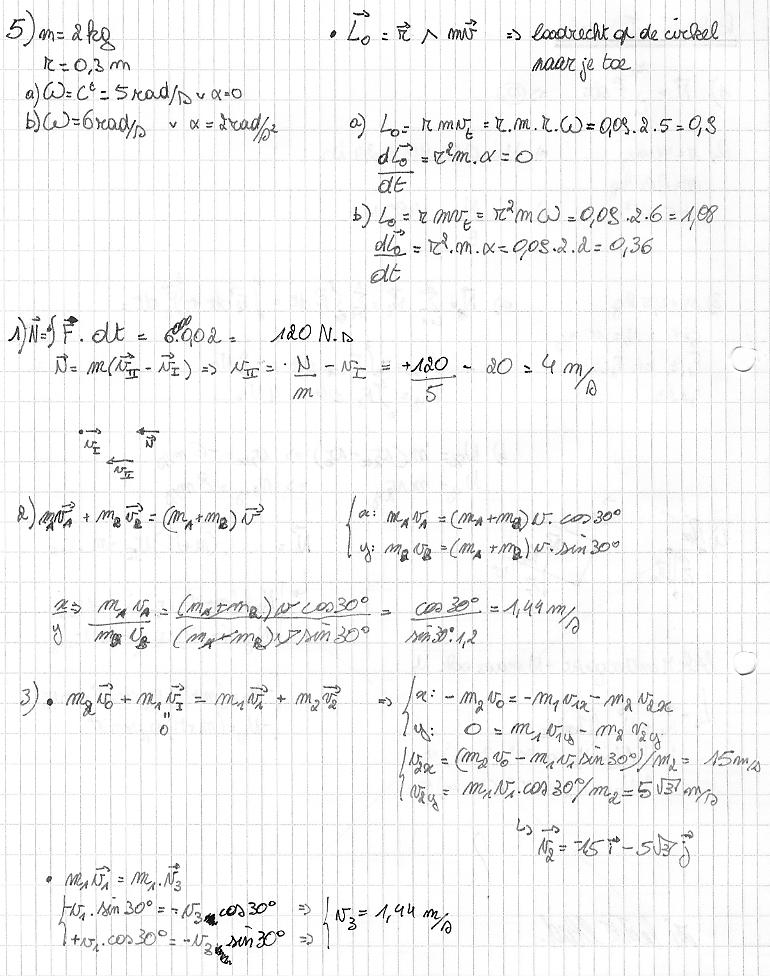 5) m = 2 kg
r = 0,3 m
a) ω = cᵗ = 5 rad/s ∨ α = 0
b) ω = 6 rad/s ∨ α = 2 rad/s²
• L⃗₀ = r⃗ ∧ mv⃗ ⇒ loodrecht op de cirkel
naar je toe
a) L₀ = r m vₜ = r.m.r.ω = 0,09.2.5 = 0,9
dL⃗₀/dt = r²m.α = 0
b) L₀ = r m vₜ = r²mω = 0,09.2.6 = 1,08
dL⃗₀/dt = r².m.α = 0,09.2.2 = 0,36
1) N⃗ = ∫ F⃗.dt = 6000.0,02 = 120 N.s
N⃗ = m(v⃗_II - v⃗_I) ⇒ v_II = N/m - v_I = +120/5 - 20 = 4 m/s
v_I N⃗
v_II
2) m_A v⃗_A + m_B v⃗_B = (m_A + m_B) v⃗
x: m_A v_A = (m_A + m_B) v. cos30°
y: m_B v_B = (m_A + m_B) v. sin30°
x/y ⇒ m_A v_A / m_B v_B = (m_A + m_B) v cos30° / (m_A + m_B) v sin30° = cos30° / sin30°.1,2 = 1,44 m/s
3) • m₂v⃗₀ + m₁v⃗_I = m₁v⃗₁ + m₂v⃗₂ ⇒ x: - m₂v₀ = - m₁v₁ₓ - m₂v₂ₓ
"
0
y: 0 = m₁v₁y - m₂v₂y
v₂ₓ = (m₂v₀ - m₁v₁sin30°)/m₂ = 15 m/s
v₂y = m₁v₁.cos30°/m₂ = 5√3 m/s
↳ v⃗₂ = -15 i⃗ - 5√3 j⃗
• m₁v⃗₁ = m₁.v⃗₃
-v₁.sin30° = -v₃ cos30° ⇒ v₃ = 1,44 m/s
+v₁.cos30° = -v₃ sin30° ⇒